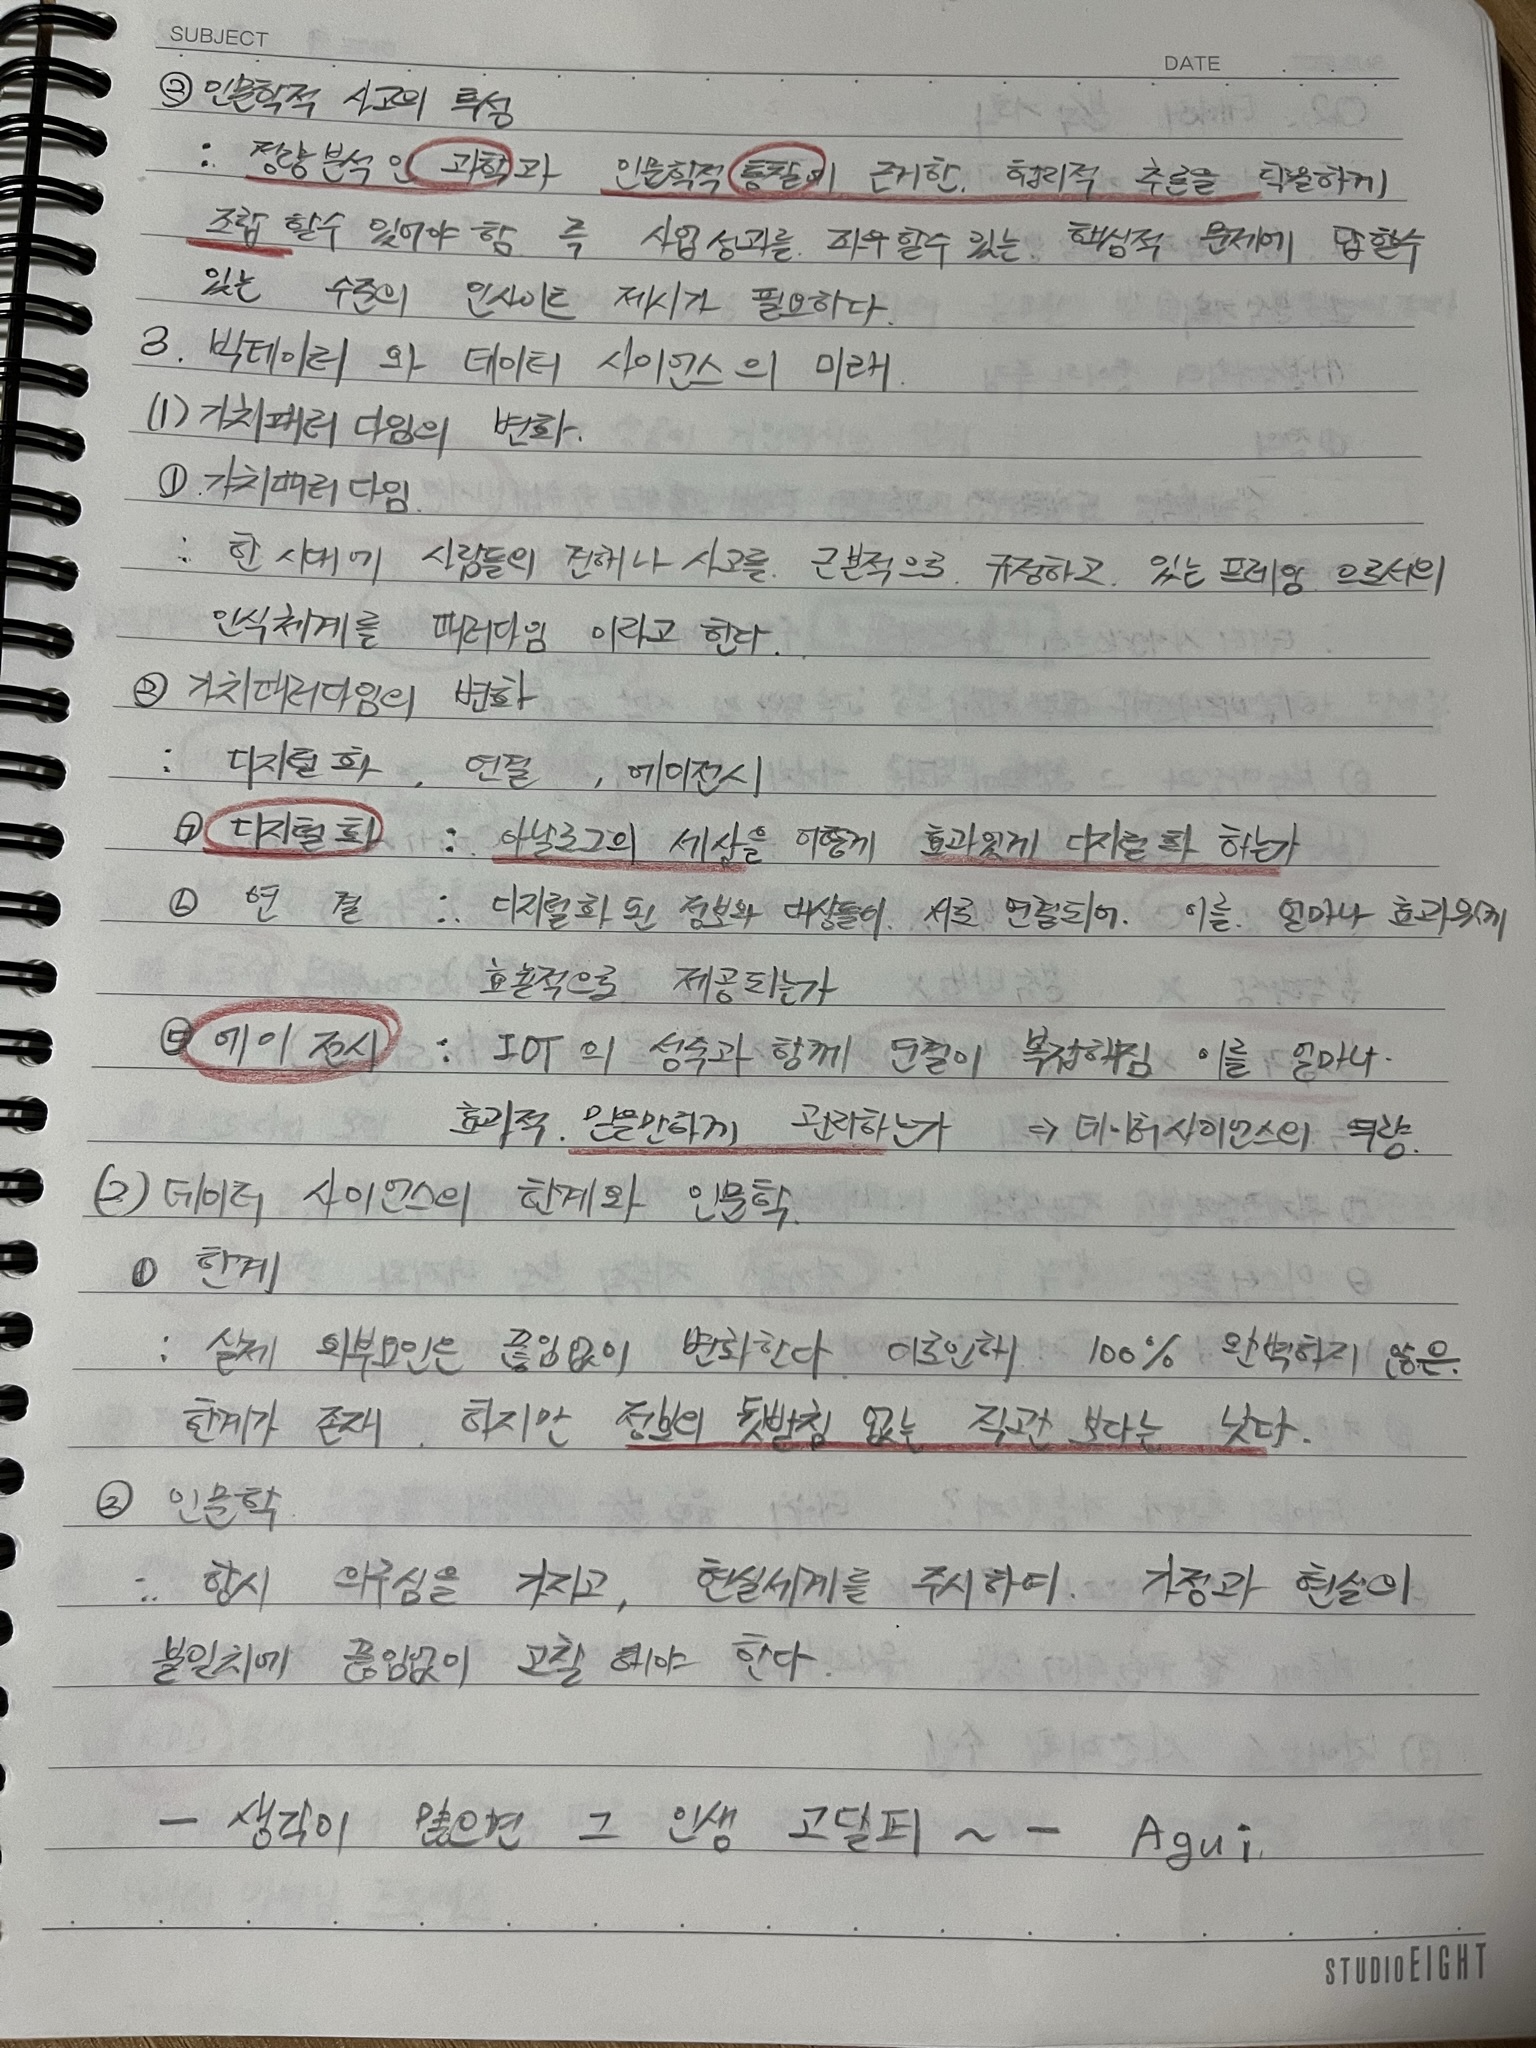 SUBJECT
DATE
② 인문학적 사고의 특성
: 정량분석인 과학과 인문학적 통찰에 근거한 합리적 추론을 탁월하게
조합 할수 있어야 함 즉 사업성과를 좌우할수 있는 핵심적 문제에 답할수
있는 수준의 인사이트 제시가 필요하다.
3. 빅데이터 와 데이터 사이언스의 미래.
(1) 가치패러다임의 변화.
① 가치패러다임.
: 한 시대에 사람들의 견해나 사고를 근본적으로 규정하고 있는 프레임 으로서의
인식체계를 패러다임 이라고 한다.
② 가치패러다임의 변화
: 디지털화, 연결, 에이전시
㉠ 디지털화 : 아날로그의 세상을 어떻게 효과있게 디지털화 하는가
㉡ 연결 : 디지털화 된 정보와 대상들이 서로 연결되어. 이를 얼마나 효과있게
효율적으로 제공되는가
㉢ 에이전시 : IOT의 성숙과 함께 연결이 복잡해짐 이를 얼마나
효과적. 믿을만하게 관리하는가 ⇒ 데이터사이언스의 역량.
(2) 데이터 사이언스의 한계와 인문학.
① 한계
: 실제 외부요인은 끊임없이 변화한다 이로인해 100% 완벽하지 않은
한계가 존재. 하지만 정보의 뒷받침 없는 직관 보다는 낫다.
② 인문학
: 항시 의구심을 가지고, 현실세계를 주시하여. 가정과 현실의
불일치에 끊임없이 고찰 해야 한다.
- 생각이 많으면 그 인생 고달퍼 ~ - Agui.
STUDIOEIGHT